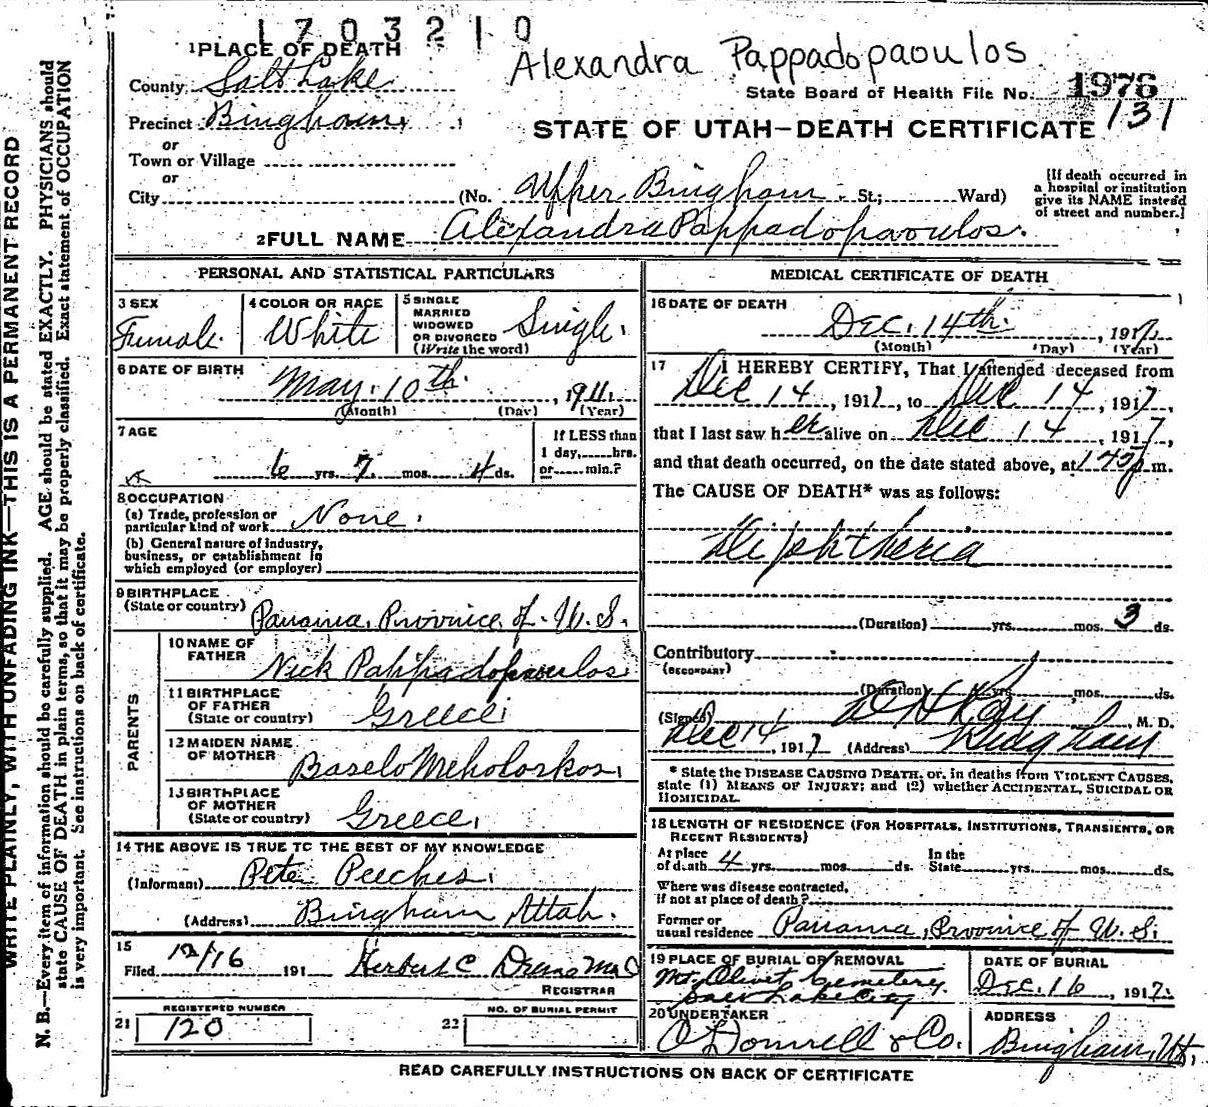 1703210
Alexandra Pappadopaoulos
1 PLACE OF DEATH
County Salt Lake
State Board of Health File No. 1976
131
Precinct Bingham
STATE OF UTAH—DEATH CERTIFICATE
or
Town or Village
or
City (No. Upper Bingham St.; Ward)
[If death occurred in
a hospital or institution
give its NAME instead
of street and number.]
2 FULL NAME Alexandra Pappadopaoulos.
PERSONAL AND STATISTICAL PARTICULARS
3 SEX
Female.
4 COLOR OR RACE
White
5 SINGLE
MARRIED
WIDOWED
OR DIVORCED
(Write the word)
Single.
6 DATE OF BIRTH
May. 10th. , 1911.
(Month) (Day) (Year)
7 AGE
6 yrs. 7 mos. 4 ds.
If LESS than
1 day, hrs.
or min.?
8 OCCUPATION
(a) Trade, profession or
particular kind of work None.
(b) General nature of industry,
business, or establishment in
which employed (or employer)
9 BIRTHPLACE
(State or country) Panama, Province of U. S.
PARENTS
10 NAME OF
FATHER Nick Pappadopaoulos
11 BIRTHPLACE
OF FATHER
(State or country) Greece
12 MAIDEN NAME
OF MOTHER Baselo Meholorkos
13 BIRTHPLACE
OF MOTHER
(State or country) Greece
14 THE ABOVE IS TRUE TO THE BEST OF MY KNOWLEDGE
(Informant) Pete Peeches.
(Address) Bingham Utah.
15
Filed 12/16 191 Herbert C
REGISTRAR
REGISTERED NUMBER
21 120
NO. OF BURIAL PERMIT
22
MEDICAL CERTIFICATE OF DEATH
16 DATE OF DEATH
Dec. 14th. , 1917.
(Month) (Day) (Year)
17 I HEREBY CERTIFY, That I attended deceased from
Dec 14 , 1917, to Dec 14 , 1917,
that I last saw her alive on Dec 14 , 1917,
and that death occurred, on the date stated above, at 145 p. m.
The CAUSE OF DEATH* was as follows:
Diphtheria
(Duration) yrs. mos. 3 ds.
Contributory
(SECONDARY)
(Duration) yrs. mos. ds.
(Signed) Ray , M. D.
Dec 14 , 1917 (Address) Bingham
* State the DISEASE CAUSING DEATH, or, in deaths from VIOLENT CAUSES,
state (1) MEANS OF INJURY; and (2) whether ACCIDENTAL, SUICIDAL OR
HOMICIDAL.
18 LENGTH OF RESIDENCE (FOR HOSPITALS, INSTITUTIONS, TRANSIENTS, OR
RECENT RESIDENTS)
At place
of death 4 yrs. mos. ds.
In the
State yrs. mos. ds.
Where was disease contracted,
if not at place of death?
Former or
usual residence Panama, Province of U. S.
19 PLACE OF BURIAL OR REMOVAL
Mt. Olivet Cemetery
Salt Lake City
DATE OF BURIAL
Dec. 16 , 1917.
20 UNDERTAKER
O'Donnell & Co.
ADDRESS
Bingham, Ut.
READ CAREFULLY INSTRUCTIONS ON BACK OF CERTIFICATE
WRITE PLAINLY, WITH UNFADING INK—THIS IS A PERMANENT RECORD
N. B.—Every item of information should be carefully supplied. AGE should be stated EXACTLY. PHYSICIANS should
state CAUSE OF DEATH in plain terms, so that it may be properly classified. Exact statement of OCCUPATION
is very important. See instructions on back of certificate.